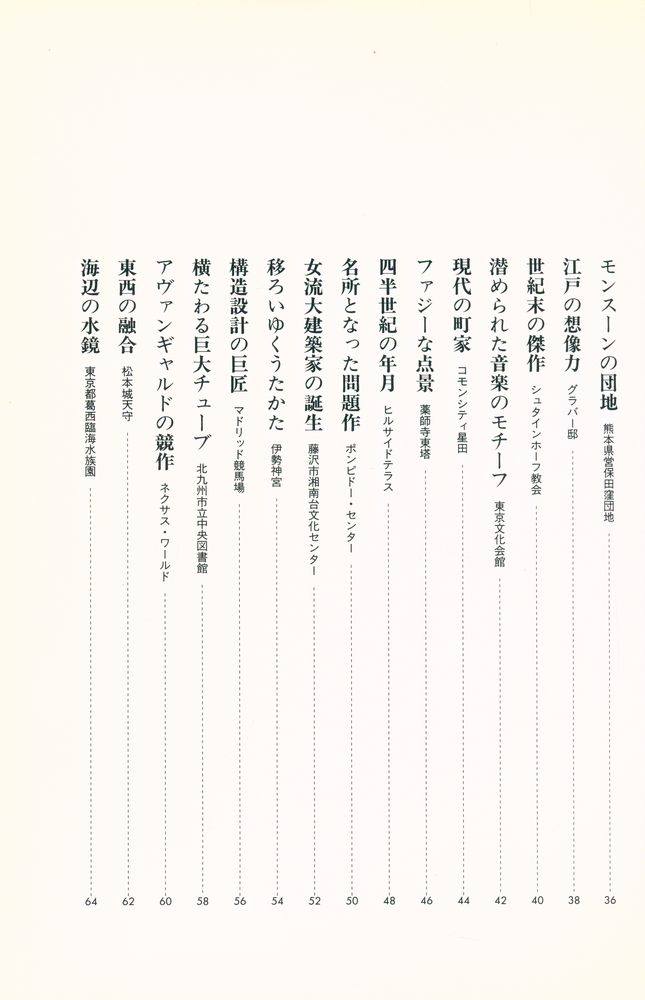 モンスーンの団地 熊本県営保田窪団地 36
江戸の想像力 グラバー邸 38
世紀末の傑作 シュタインホーフ教会 40
潜められた音楽のモチーフ 東京文化会館 42
現代の町家 コモンシティ星田 44
ファジーな点景 薬師寺東塔 46
四半世紀の年月 ヒルサイドテラス 48
名所となった問題作 ポンピドー・センター 50
女流大建築家の誕生 藤沢市湘南台文化センター 52
移ろいゆくうたかた 伊勢神宮 54
構造設計の巨匠 マドリッド競馬場 56
横たわる巨大チューブ 北九州市立中央図書館 58
アヴァンギャルドの競作 ネクサス・ワールド 60
東西の融合 松本城天守 62
海辺の水鏡 東京都葛西臨海水族園 64